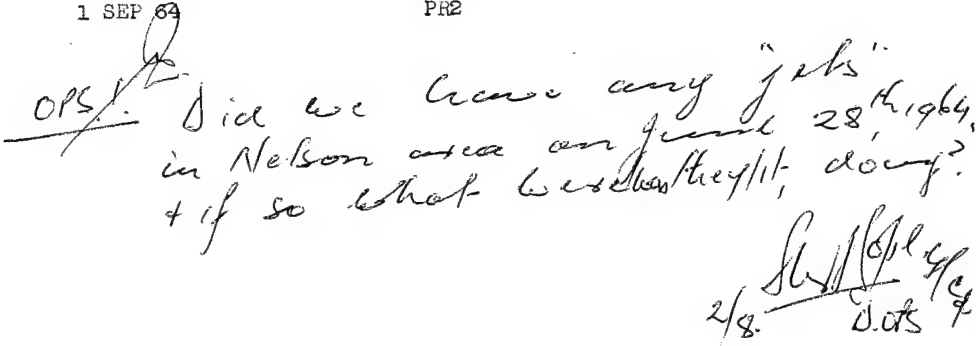 1 SEP 64 PR2
OPS.1. Did we have any "jets"
in Nelson area on June 28th 1964,
+ if so what were/was they/it, doing?
2/8. D.OPS